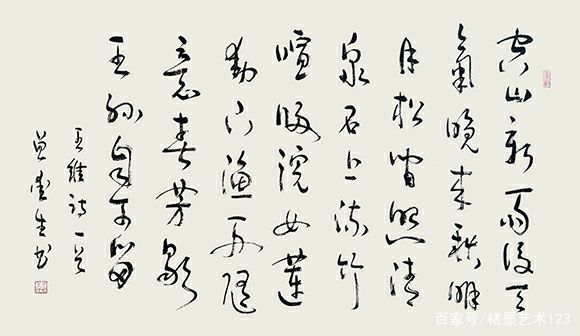 空山新雨後天
氣晚來秋明
月松間照清
泉石上流竹
喧歸浣女蓮
動下漁舟隨
意春芳歇
王孫自可留
王維詩一首
生书
百家号/楮墨艺术123